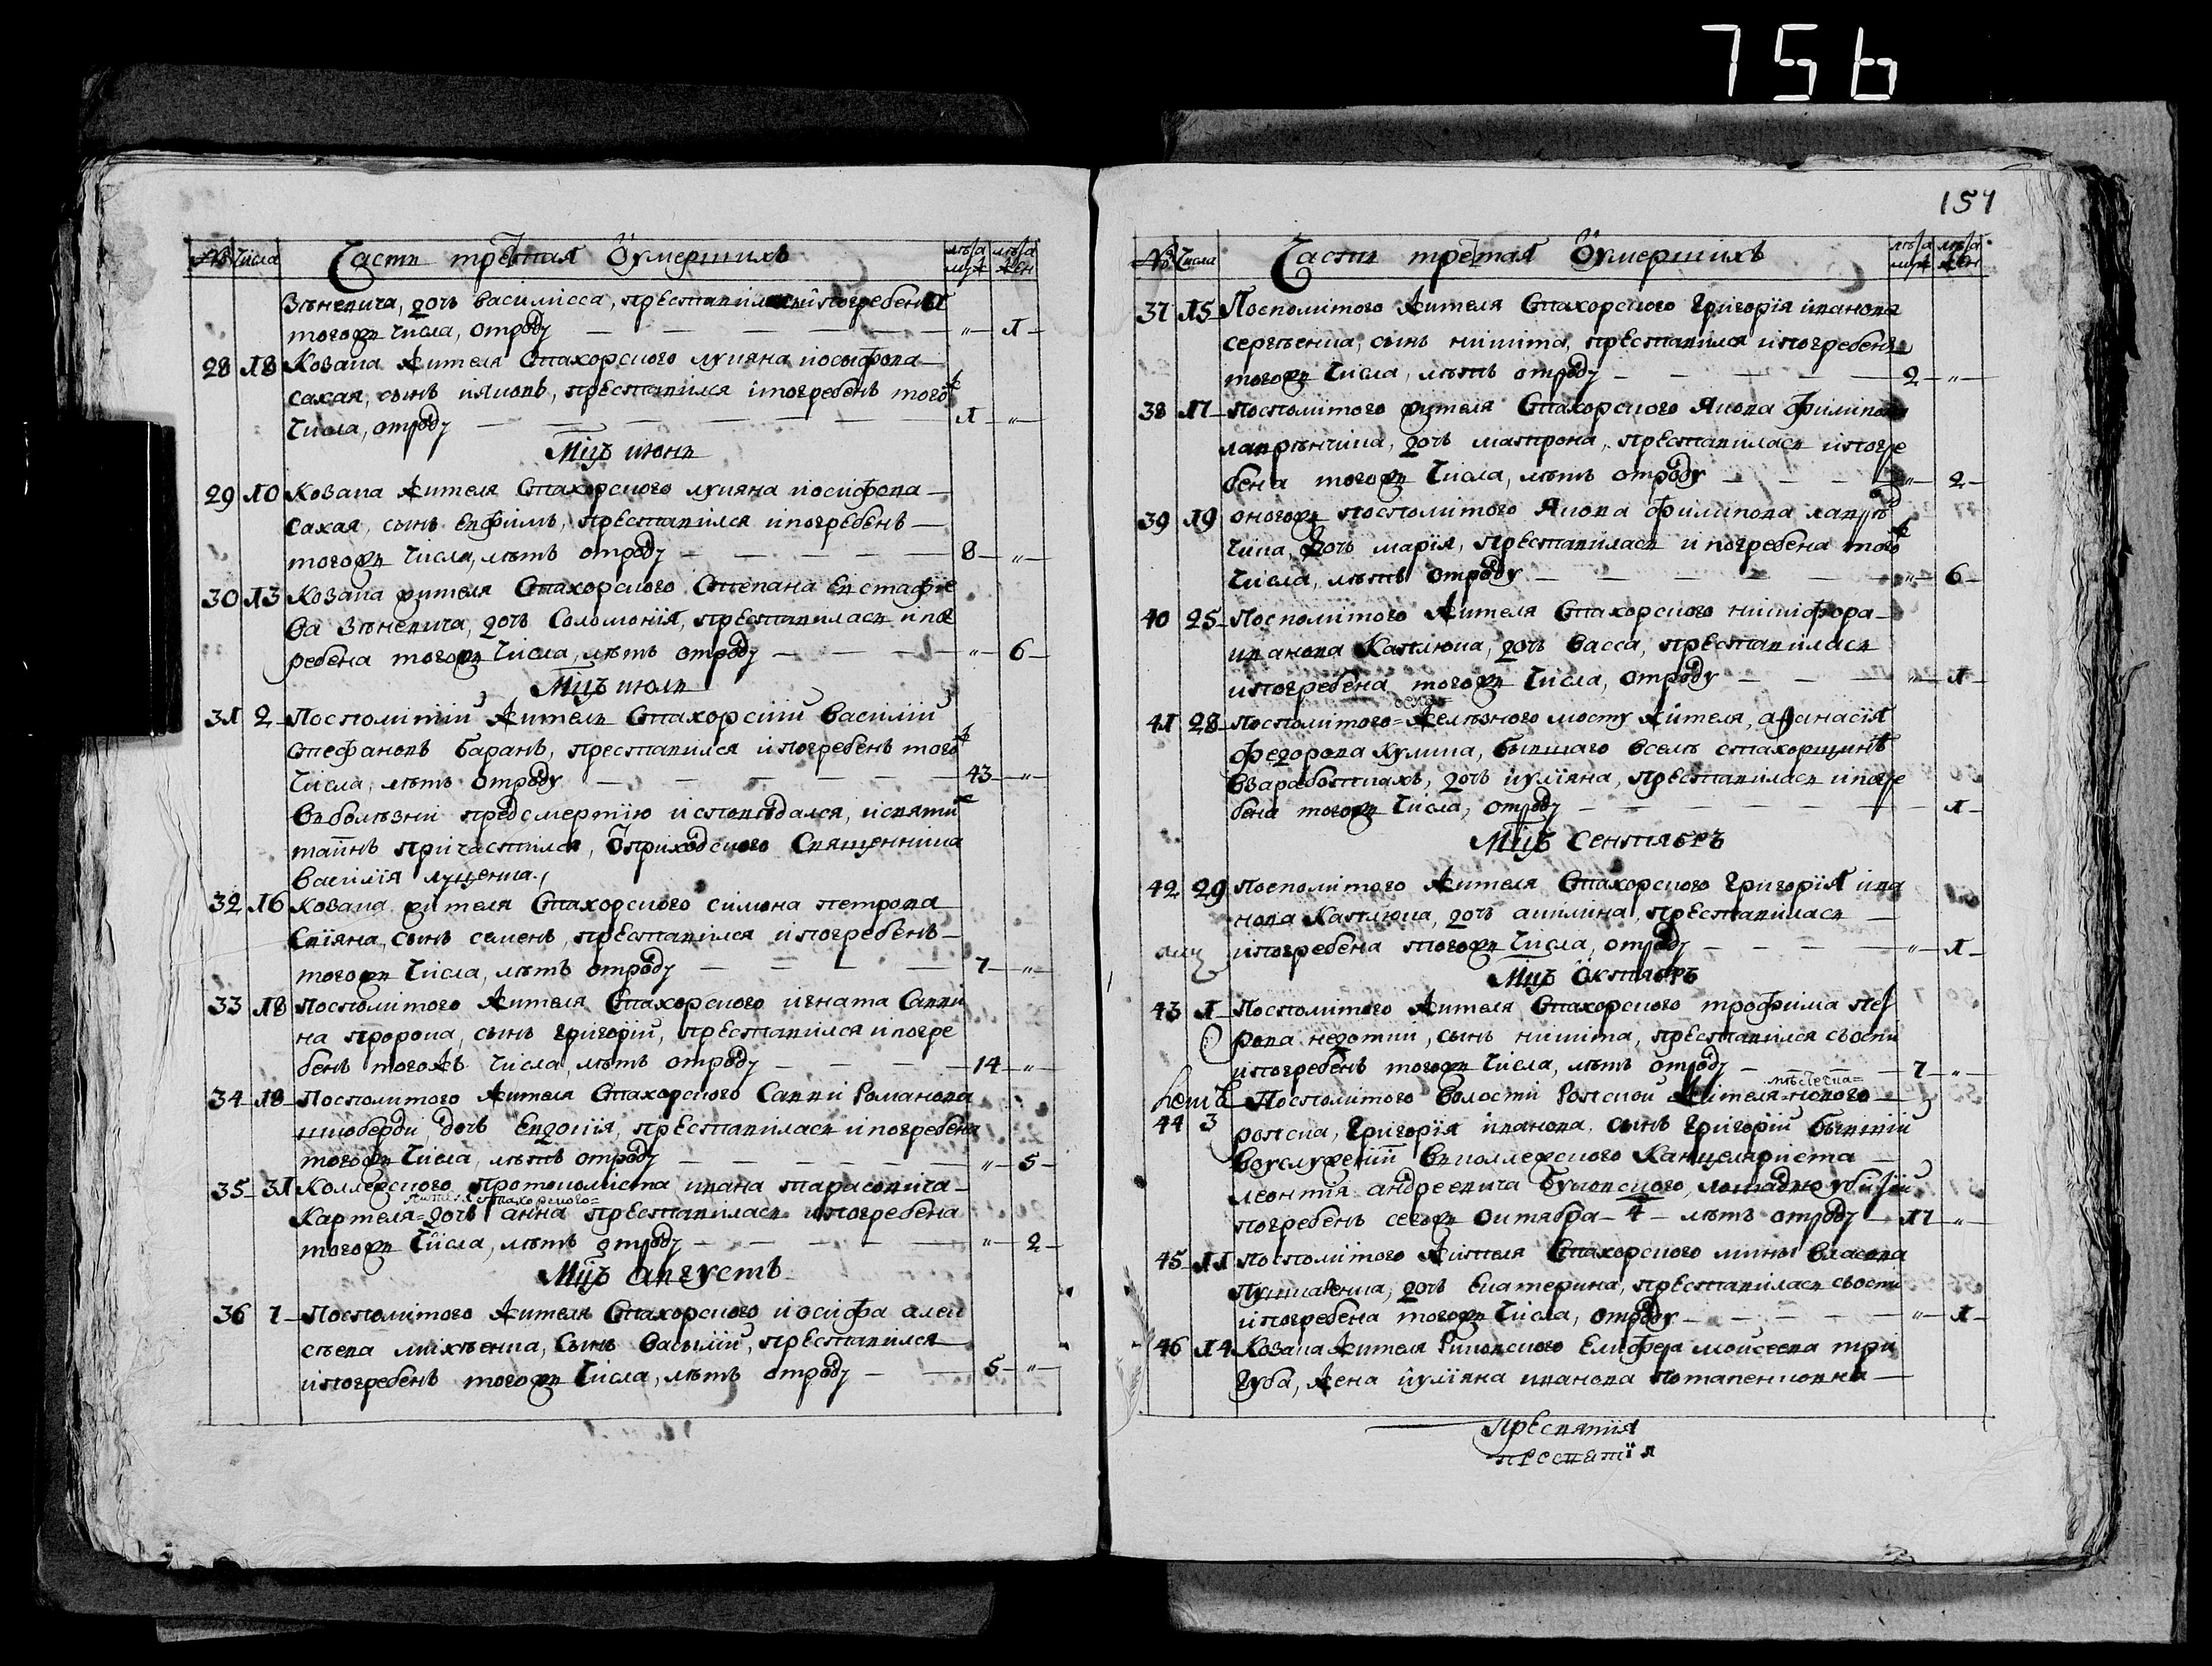 756
№ Числа Часть третая Ѿ умершихъ лѣта муж лѣта жен
Зѣневича, дочь Василисса, преставилась и погребена
того ж числа, отроду — „ — 1 —
28 18 Козака жителя Стахорского лукяна иосифова
сахая, сынъ ияковъ, преставился и погребенъ того ж
числа, отроду — 1 — „ —
Мцъ июнь
29 10 Козака жителя Стахорского лукяна иосифова
сахая, сынъ Евфимъ, преставился и погребенъ
того ж числа, лѣтъ отроду — 8 — „ —
30 13 Козака жителя Стахорского Степана Евстафіе
ва Зѣневича, дочь Соломонія, преставилась и пог
ребена того ж числа, лѣтъ отроду — „ — 6 —
Мцъ июль
31 2 Посполитій житель Стахорскій Василій
Стефановъ баранъ, преставился и погребенъ того ж
числа, лѣтъ отроду — 43 — „ —
въ болѣзни предсмертію исповѣдался, и святих
таинъ причастился, Ѿ приходского Священника
Василія луценка.
32 16 Козака жителя Стахорского симона петрова
Евіяна, сынъ семенъ, преставился и погребенъ
того ж числа, лѣтъ отроду — 7 — „ —
33 18 Посполитого жителя Стахорского игната Савви
на пророка, сынъ григорій, преставился и погре
бенъ тогожъ числа, лѣтъ отроду — 14 — „ —
34 18 Посполитого жителя Стахорского Савви Романова
шкоберди, дочь Евдокія, преставилась и погребена
того ж числа, лѣтъ отроду — „ — 5 —
35 31 Коллежского протоколиста ивана тарасовича
жителя стахорского=
Картеля= дочь анна преставилась и погребена
того ж числа, лѣтъ отроду — „ — 2 —
Мцъ августъ
36 7 Посполитого жителя Стахорского иосифа алек
сѣева михѣенка, сынъ Василій, преставился
и погребенъ того ж числа, лѣтъ отроду — 5 — „ —
157
№ Числа Часть третая Ѿ умершихъ лѣта муж лѣта жен
37 15 Посполитого жителя Стахорского григорія иванова
сергѣенка, сынъ никита, преставился и погребенъ
того ж числа, лѣтъ отроду — 2 — „ —
38 17 Посполитого жителя Стахорского якова филипова
лаврѣнчика, дочь матрона, преставилась и погре
бена того ж числа, лѣтъ отроду — „ — 2 —
39 19 оного ж посполитого якова филипова лаврѣн
чика, дочь марія, преставилась и погребена того ж
числа, лѣтъ отроду — „ — 6 —
40 25 Посполитого жителя Стахорского никифора
иванова Каплюка, дочь Васса, преставилась
и погребена того ж числа, отроду — „ — 1 —
41 28 посполитого= желѣзного мосту жителя, афанасія
федорова кулика, бывшаго в селѣ стахорщинѣ
в заработкахъ, дочь иуліяна, преставилась и погре
бена того ж числа, отроду — 1 —
Мцъ Сентябръ
42 29 посполитого жителя Стахорского григорія ива
нова Каплюка, дочь акилина, преставилась
и погребена того ж числа, отроду — „ — 1 —
Мцъ Октябръ
43 1 Посполитого жителя Стахорского трофима пет
рова недоткй, сынъ никита, преставился съ оспи
и погребенъ того ж числа, лѣтъ отроду — 7 — „ —
мѣстечка=
44 3 Посполитого Волости Ропской жителя= нового
ропска, григорія иванова сынъ григорій бывшій
в услуженіи в коллежского Канцеляриста
леонтія андреевича Буковского, лошадью убитій
погребенъ сего ж октября 4 лѣтъ отроду — 17 — „ —
45 11 посполитого жителя Стахорского мины власова
, дочь Екатерина, преставилась съ оспи
и погребена того ж числа, отроду — „ — 1 —
46 14 Козака жителя Риковского Елифера моисеева три
губа, жена иуліяна иванова потапенковна
пресвятія
пресвятія